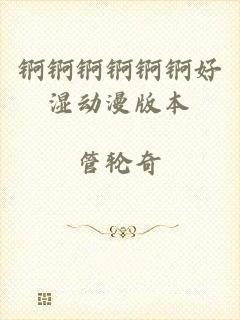 锕锕锕锕锕锕好
湿动漫版本
管轮奇